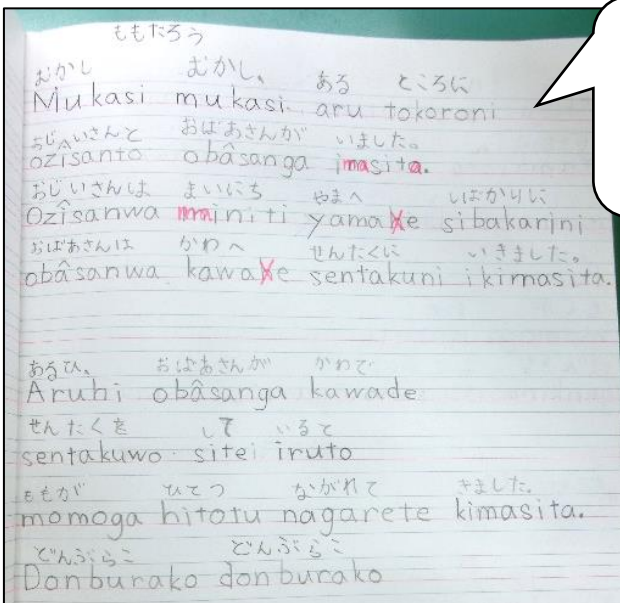 ももたろう
むかし むかし、 ある ところに
Mukasi mukasi aru tokoroni
おじいさんと おばあさんが いました。
ozisanto obâsanga imasita.
おじいさんは まいにち やまへ しばかりに
Ozîsanwa mainiti yamae sibakarini
おばあさんは かわへ せんたくに いきました。
obâsanwa kawae sentakuni ikimasita.
あるひ、 おばあさんが かわで
Aruhi obâsanga kawade
せんたくを して いると
sentakuwo sitei iruto
ももが ひとつ ながれて きました。
momoga hitotu nagarete kimasita.
どんぶらこ どんぶらこ
Donburako donburako